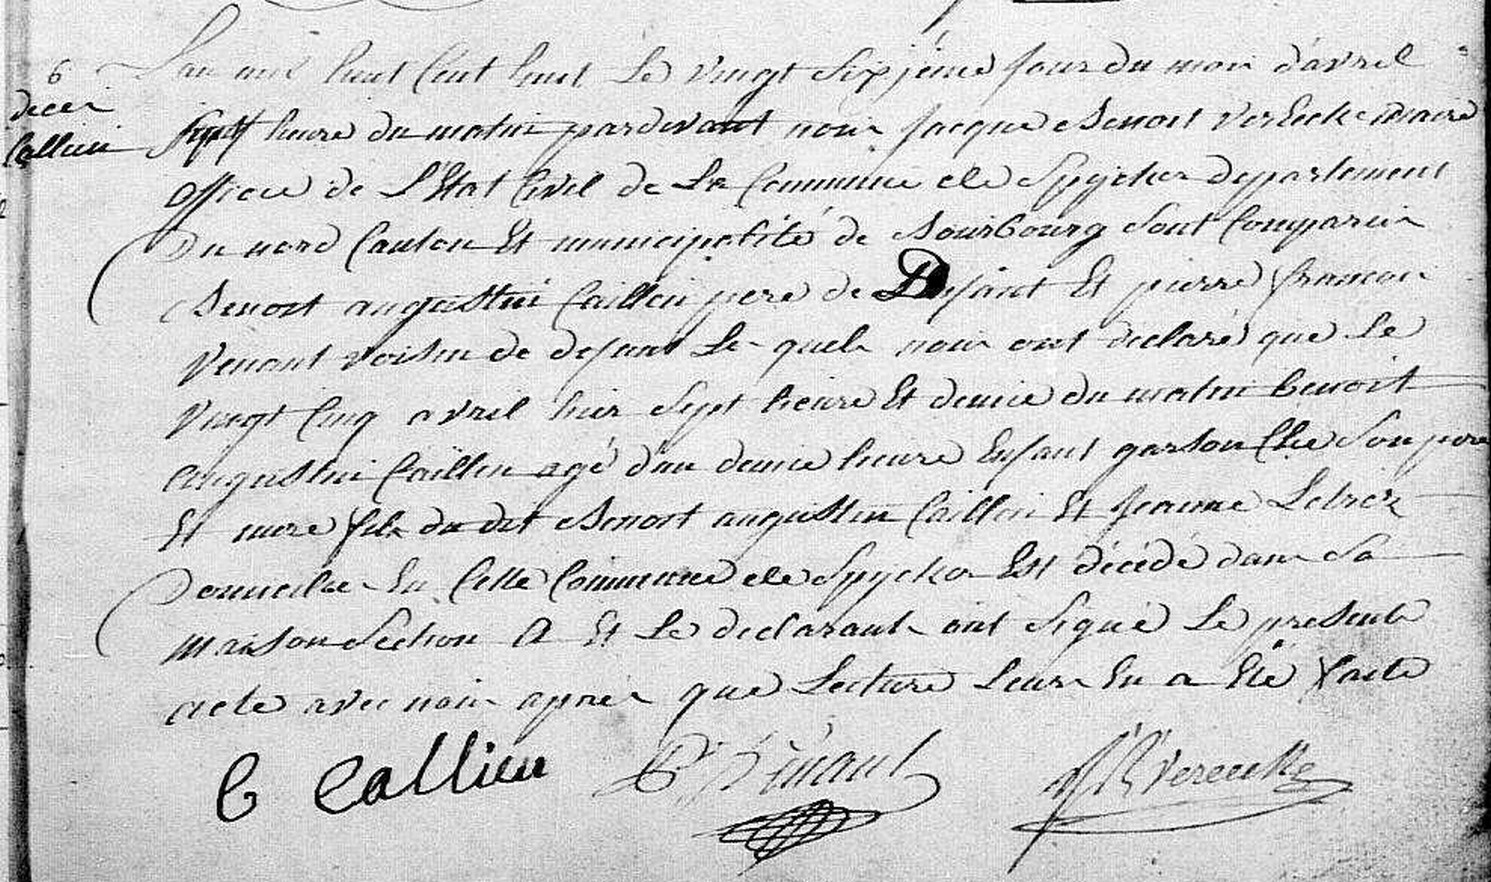 6
deces
Callieu
L'an mil huit Cent huit Le vingt Sixjème Jour du mois d'avril
Sept heure du matin pardevant nous Jacque Benoit Verecke maire
officie de L'Etat Civil de La Commune de Spycker departement
Du nord Canton Et municipalité de Bourbourg Sont Comparus
Benoit augustin Caillieu pere de Denfant Et pierre francois
Venant voisin de defunt Le quels nous ont declaré que Le
Vingt Cinq avril hier Sept heure Et demie du matin benoit
augustin Caillieu agé d'un demie heure Enfant garson Ché Son pere
Et mere fils du dit Benoit augustin Caillieu Et Jeanne
Domicilie En Cette Commune de Spycker Est décédé dans Sa
maison Section A Et Le declarants ont Signé Le presente
acte avec nous apres que Lecture Leurs En a Eté faite
C Callieu P. F. Venant J B Verecke